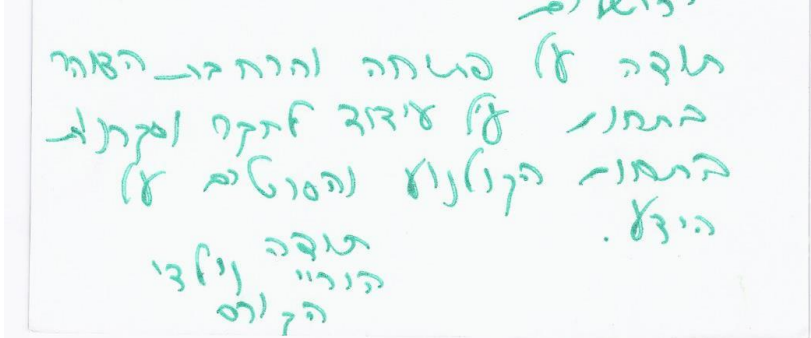 ירושלים
תודה על פתיחה והרחבת הצוהר
בתחום על עידוד לחקר ומקרנות
בתחום הקולנוע והסרטים על
הידע.
תודה
הוריי וילדי
הקורס